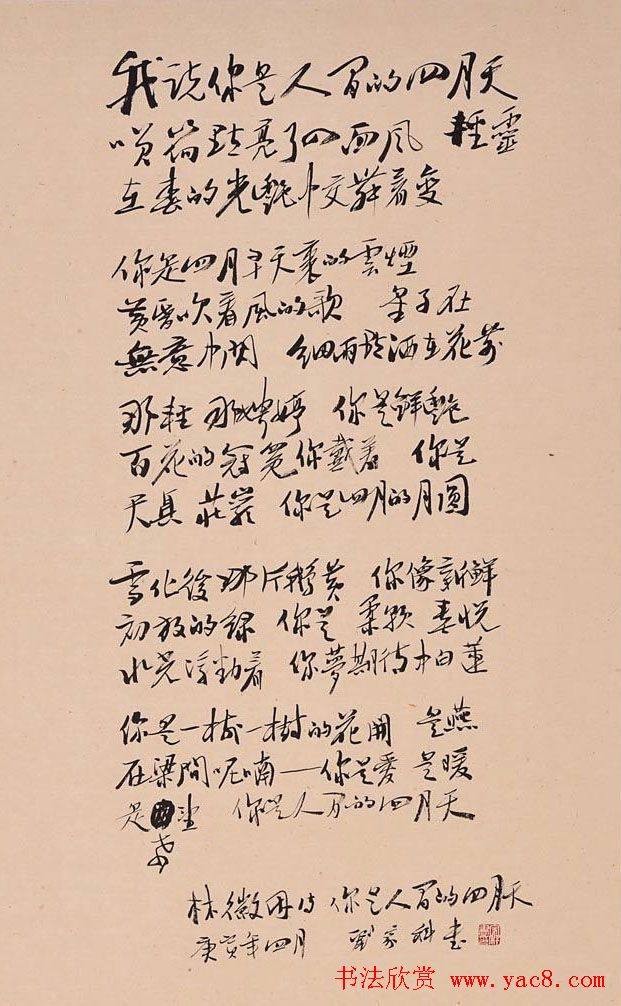 我说你是人间的四月天
點亮了四面風 輕靈
在春的光艷中交舞着变
你是四月早天裏的雲煙
黄昏吹着風的歌 星子在
無意中閃 細雨點洒在花前
那輕 那娉婷 你是鮮艷
百花的冠冕你戴着 你是
天真 莊嚴 你是四月的月圆
雪化後那片鵝黄 你像新鮮
初放的绿 你是 柔嫩 喜悦
水光浮動着 你夢期待中白蓮
你是一樹一樹的花開 是燕
在梁間呢喃——你是愛 是暖
是希望 你是人间的四月天
林徽因诗 你是人间的四月天
庚寅年四月 劉家科書
书法欣赏 www.yac8.com